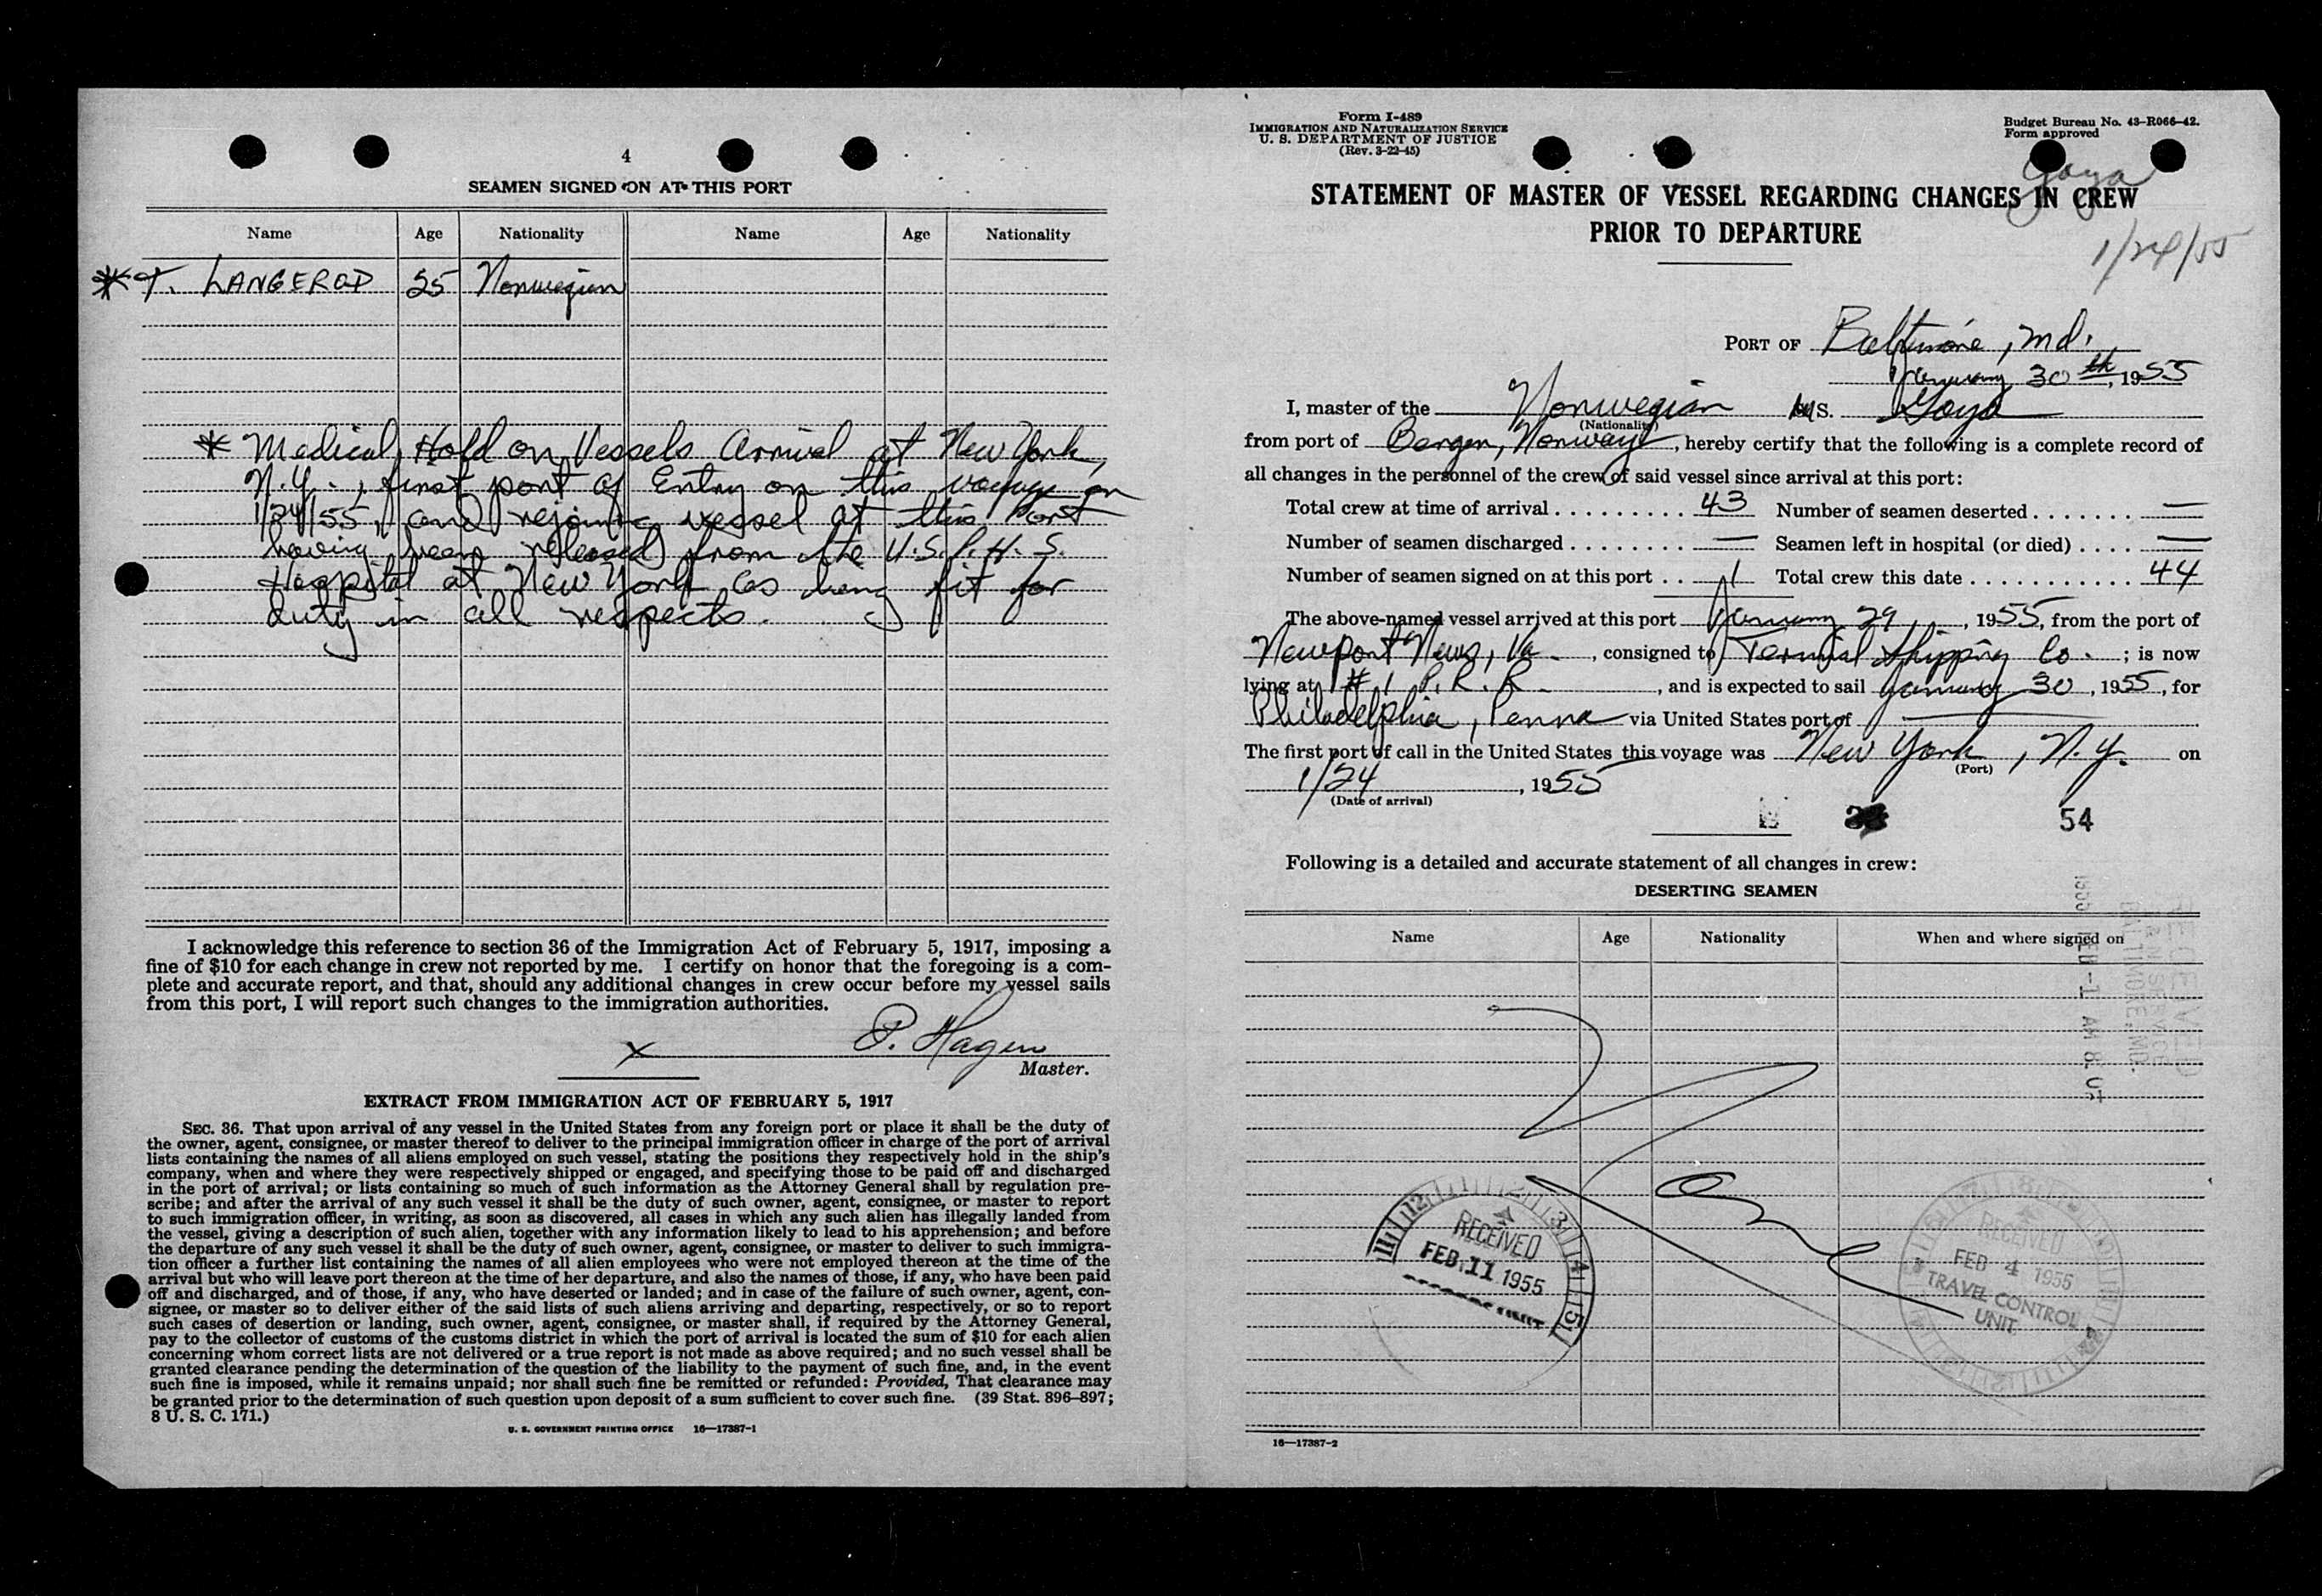 4
SEAMEN SIGNED ON AT THIS PORT
Name Age Nationality Name Age Nationality
* T. LANGEROD 25 Norwegian
* Medical Hold on Vessels Arrival at New York,
N.Y., first port of Entry on this voyage on
1/24/55, and rejoining vessel at this Port
having been released from the U.S.P.H.S.
Hospital at New York as being fit for
duty in all respects.
I acknowledge this reference to section 36 of the Immigration Act of February 5, 1917, imposing a
fine of $10 for each change in crew not reported by me. I certify on honor that the foregoing is a com-
plete and accurate report, and that, should any additional changes in crew occur before my vessel sails
from this port, I will report such changes to the immigration authorities.
x P. Hagen
Master.
EXTRACT FROM IMMIGRATION ACT OF FEBRUARY 5, 1917
SEC. 36. That upon arrival of any vessel in the United States from any foreign port or place it shall be the duty of
the owner, agent, consignee, or master thereof to deliver to the principal immigration officer in charge of the port of arrival
lists containing the names of all aliens employed on such vessel, stating the positions they respectively hold in the ship's
company, when and where they were respectively shipped or engaged, and specifying those to be paid off and discharged
in the port of arrival; or lists containing so much of such information as the Attorney General shall by regulation pre-
scribe; and after the arrival of any such vessel it shall be the duty of such owner, agent, consignee, or master to report
to such immigration officer, in writing, as soon as discovered, all cases in which any such alien has illegally landed from
the vessel, giving a description of such alien, together with any information likely to lead to his apprehension; and before
the departure of any such vessel it shall be the duty of such owner, agent, consignee, or master to deliver to such immigra-
tion officer a further list containing the names of all alien employees who were not employed thereon at the time of the
arrival but who will leave port thereon at the time of her departure, and also the names of those, if any, who have been paid
off and discharged, and of those, if any, who have deserted or landed; and in case of the failure of such owner, agent, con-
signee, or master so to deliver either of the said lists of such aliens arriving and departing, respectively, or so to report
such cases of desertion or landing, such owner, agent, consignee, or master shall, if required by the Attorney General,
pay to the collector of customs of the customs district in which the port of arrival is located the sum of $10 for each alien
concerning whom correct lists are not delivered or a true report is not made as above required; and no such vessel shall be
granted clearance pending the determination of the question of the liability to the payment of such fine, and, in the event
such fine is imposed, while it remains unpaid; nor shall such fine be remitted or refunded: Provided, That clearance may
be granted prior to the determination of such question upon deposit of a sum sufficient to cover such fine. (39 Stat. 896-897;
8 U. S. C. 171.)
U. S. GOVERNMENT PRINTING OFFICE 16—17387-1
Form I-489
IMMIGRATION AND NATURALIZATION SERVICE
U. S. DEPARTMENT OF JUSTICE
(Rev. 3-22-45)
Budget Bureau No. 43-R066-42.
Form approved
Goya
STATEMENT OF MASTER OF VESSEL REGARDING CHANGES IN CREW
PRIOR TO DEPARTURE
1/24/55
PORT OF Baltimore, Md.
January 30th, 1955
I, master of the Norwegian MS. Goya
(Nationality)
from port of Bergen, Norway, hereby certify that the following is a complete record of
all changes in the personnel of the crew of said vessel since arrival at this port:
Total crew at time of arrival . . . . . . . . . 43 Number of seamen deserted . . . . . . . —
Number of seamen discharged . . . . . . . . — Seamen left in hospital (or died) . . . . —
Number of seamen signed on at this port . . 1 Total crew this date . . . . . . . . . . . . 44
The above-named vessel arrived at this port January 29, 1955, from the port of
Newport News, Va., consigned to Terminal Shipping Co.; is now
lying at # 1 P.R.R., and is expected to sail January 30, 1955, for
Philadelphia, Penna via United States port of —
The first port of call in the United States this voyage was New York, N.Y. on
(Port)
1/24, 1955
(Date of arrival)
54
Following is a detailed and accurate statement of all changes in crew:
DESERTING SEAMEN
Name Age Nationality When and where signed on
RECEIVED
BALTIMORE, MD.
1955 FEB -1 AM 8
RECEIVED
FEB 11 1955
RECEIVED
FEB 4 1955
TRAVEL CONTROL
UNIT
16—17387-2